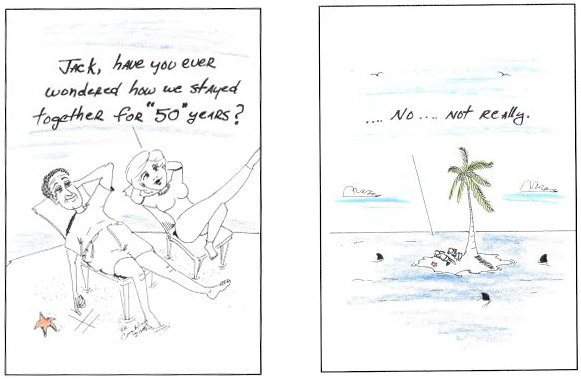 Jack, have you ever
wondered how we stayed
together for "50" years?
.... No .... not really.